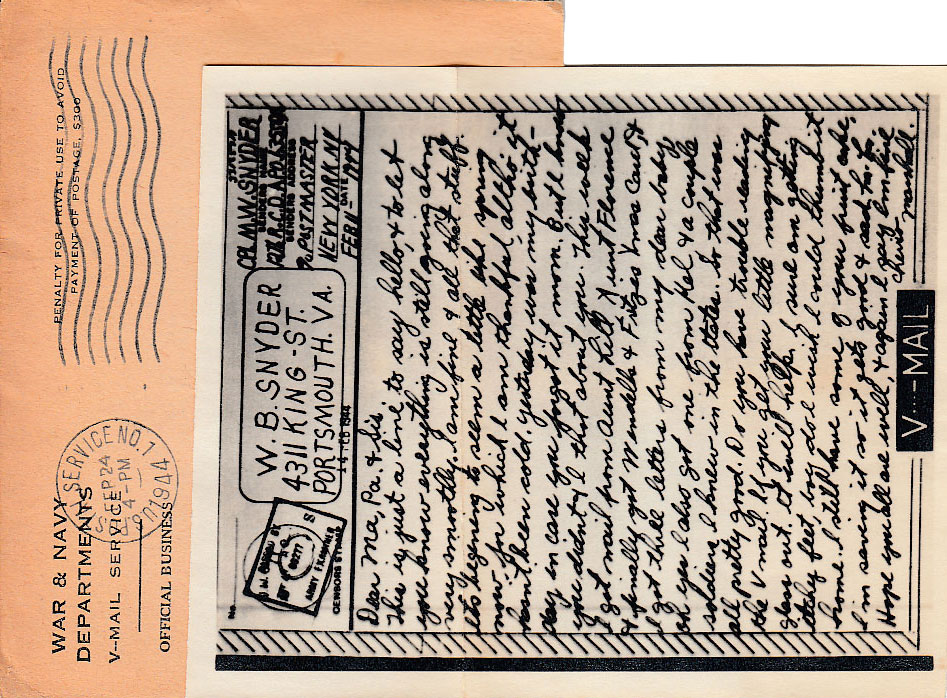 WAR & NAVY
DEPARTMENTS
V--MAIL SERVICE
OFFICIAL BUSINESS
SERVICE NO. 1
SEP 24
4 PM
1944
PENALTY FOR PRIVATE USE TO AVOID
PAYMENT OF POSTAGE, $300
No.
ARMY EXAMINER
CENSOR'S STAMP
W. B. SNYDER
4311 KING-ST.
PORTSMOUTH. VA.
14 FEB 1944
CPL M.W. SNYDER
SENDER'S NAME
SENDER'S ADDRESS
POSTMASTER
NEW YORK. N.Y
DATE
FEB 11 - 1944
Dear Ma, Pa. & Sis.
This is just a line to say hello, & to let
you know everything is still going along
very smoothly. I am fine & all that stuff.
Its begining to seem a little like spring
now for which I am thankful, altho it
hasnt been cold. yesterday was my birth-
day in case you forgot it mom. But I know
you didnt & thot about you. this week
I got mail from Aunt Lill, Aunt Florence
& finally got Wendells & Fitzges Xmas Cards &
I got three letters from my dear baby
oh yes I also got one from Hal & a couple
soldiers I knew in the States. So that was
all pretty good. Do you have trouble reading
the V mail? If you get you little magnifying
glass out. it will help. I sure am getting
itchy feet, boy do I wish I could thumb it
home. I still have some of your fruit cake,
I'm saving it so it gets good &
Hope you all are well, & again I say
cheerio
V---MAIL